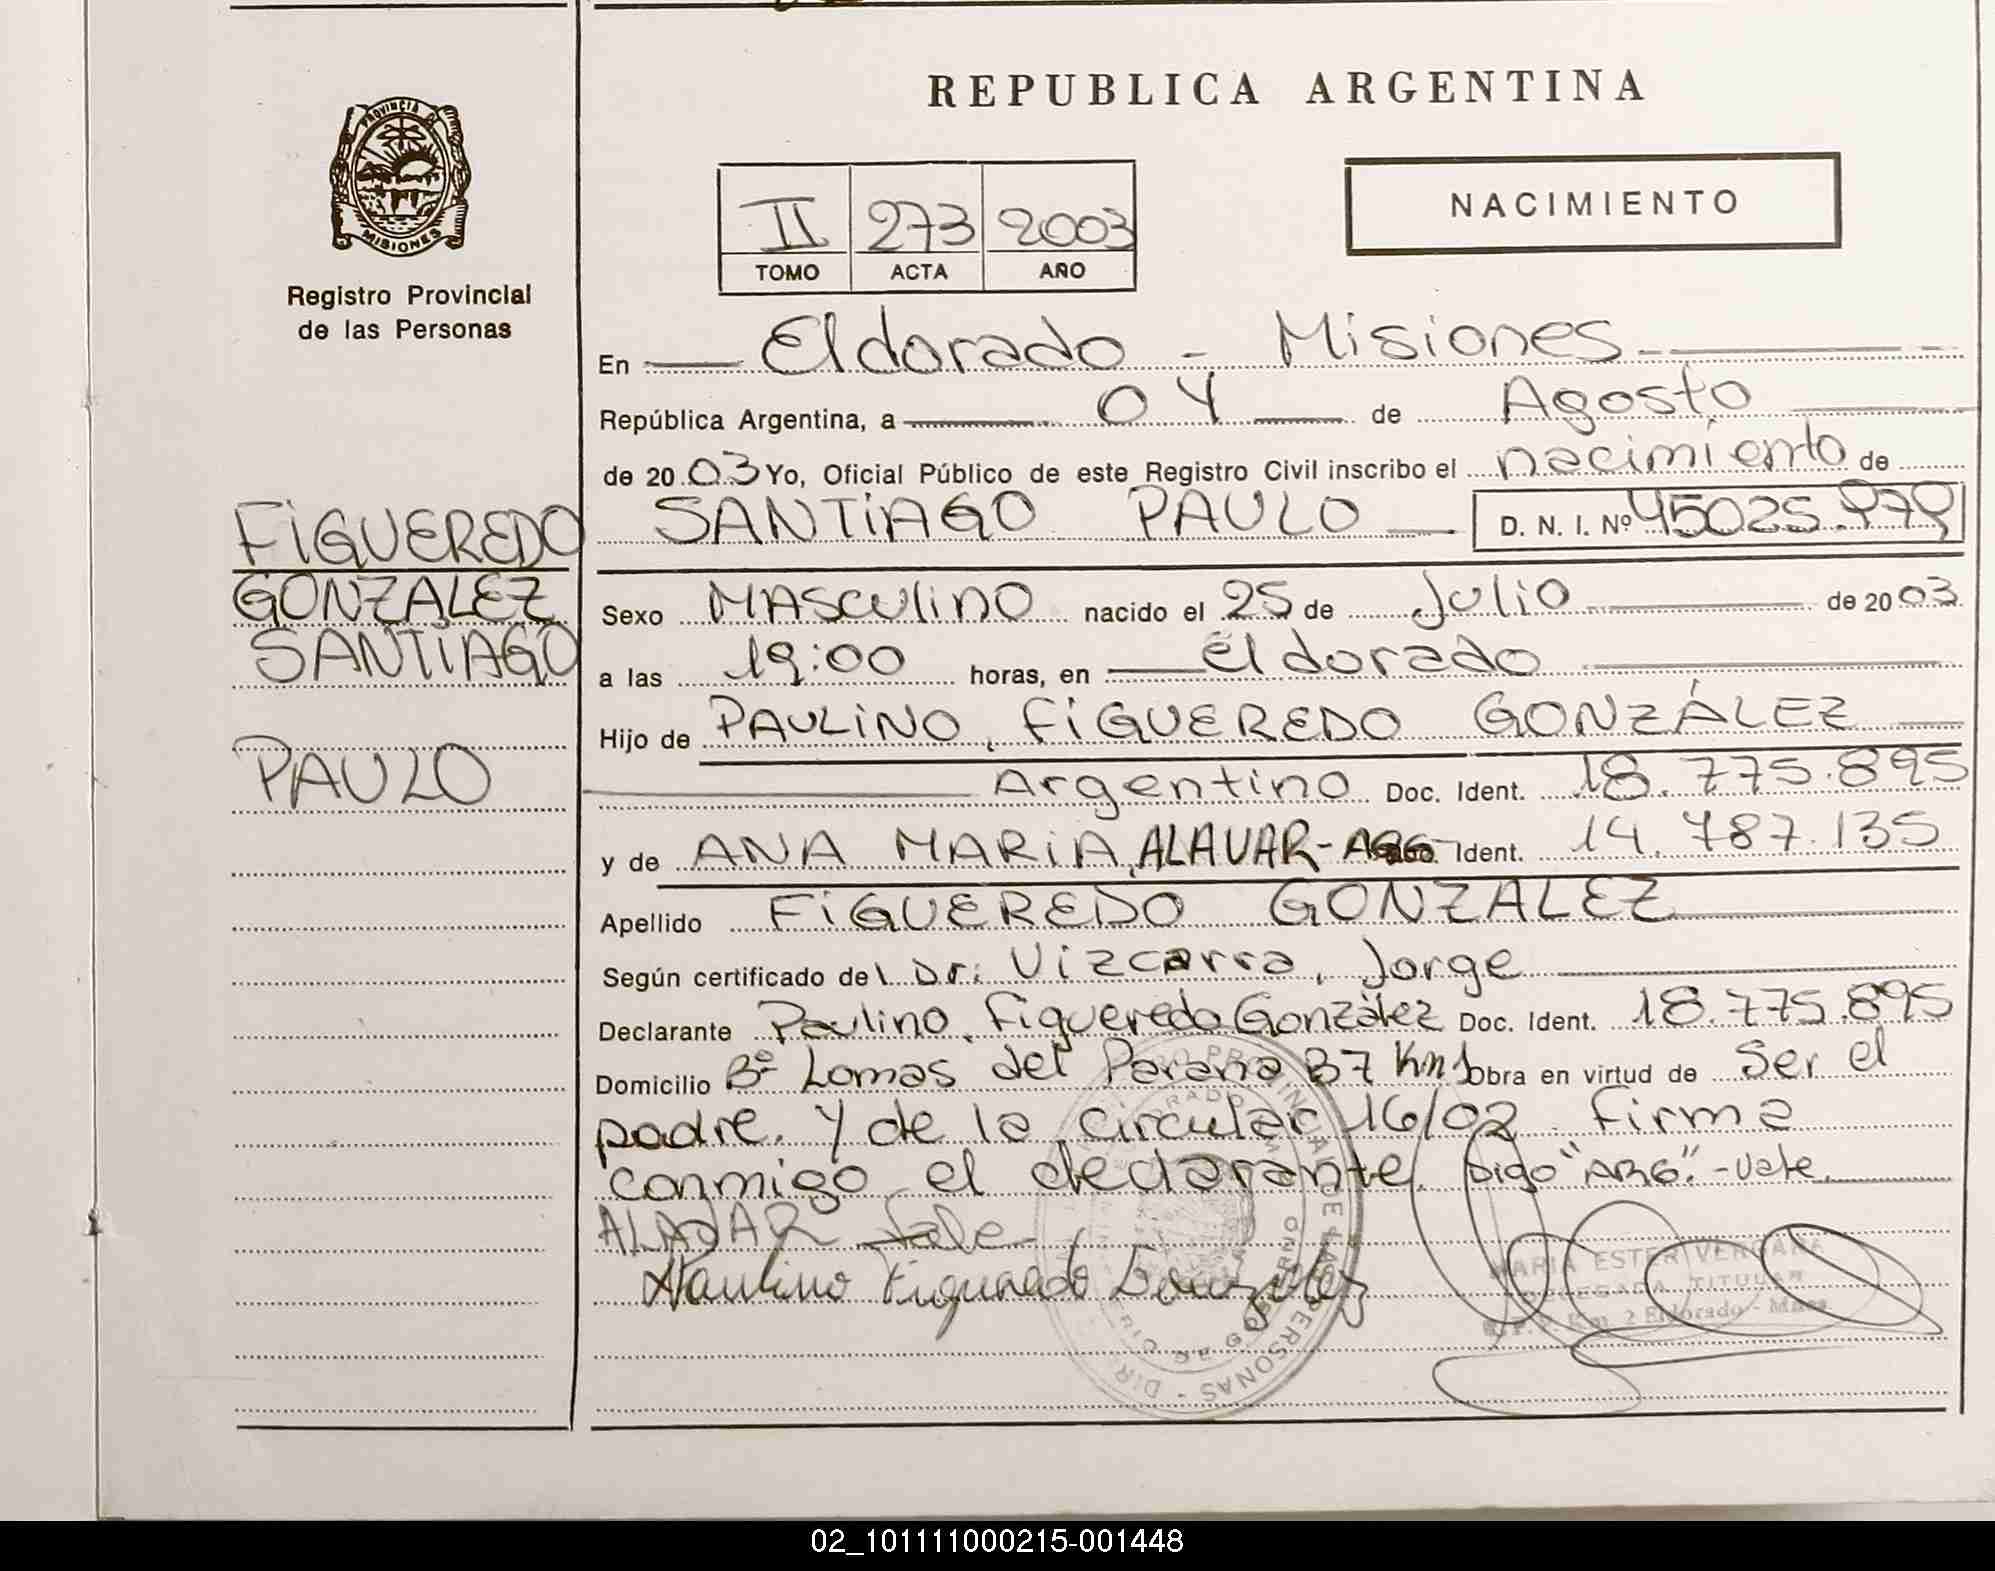 REPUBLICA ARGENTINA
PROVINCIA DE
MISIONES
Registro Provincial
de las Personas
II 273 2003
TOMO ACTA AÑO
NACIMIENTO
En Eldorado - Misiones
República Argentina, a 04 de Agosto
de 2003 Yo, Oficial Público de este Registro Civil inscribo el nacimiento de
SANTIAGO PAULO D. N. I. Nº 45025.979
FIGUEREDO
GONZALEZ
SANTIAGO
PAULO
Sexo MASCULINO nacido el 25 de Julio de 2003
a las 19:00 horas, en Eldorado
Hijo de PAULINO, FIGUEREDO GONZÁLEZ
Argentino Doc. Ident. 18.775.895
y de ANA MARIA, ALAVAR- Ident. 14.787.135
Apellido FIGUEREDO GONZALEZ
Según certificado del Dr: Vizcarra, Jorge
Declarante Paulino, Figueredo González Doc. Ident. 18.775.895
Domicilio Bº Lomas del Parana B7 Km1 Obra en virtud de Ser el
padre. Y de la circular 16/02. Firma
conmigo el declarante. Digo "ARG".-Vale.
Vale
Paulino Figueredo Gonzalez
MARIA ESTER VERGARA
DELEGADA TITULAR
Km. 2 Eldorado - Mnes.
02_101111000215-001448